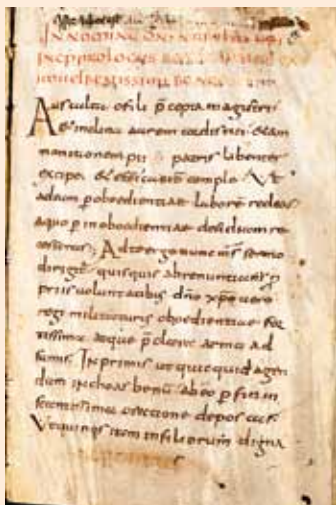 IN NOMINE DNI NRI
INCP PROLOGUS
Ausculta o fili p̄cepta magistri
& inclina aurem cordis tui & am
monitionem pii patris libenter
excipe & efficacit̄ comple Ut
ad eum p oboedientiae laborē redeas
a quo p inoboedientiae desidiam re
cesseras; Ad te ergo nunc m̄s sermo
dirigit quisquis abrenuntians p
priis voluntatibus dn̄o xp̄o vero
regi militaturus oboedientiae for
tissima atque p̄clara arma ad
sumis. In primis ut quicquid agen
dum inchoas bonū ab eo p fici in
stantissima oratione deposcas.
Ut qui nos iam in filiorum digna